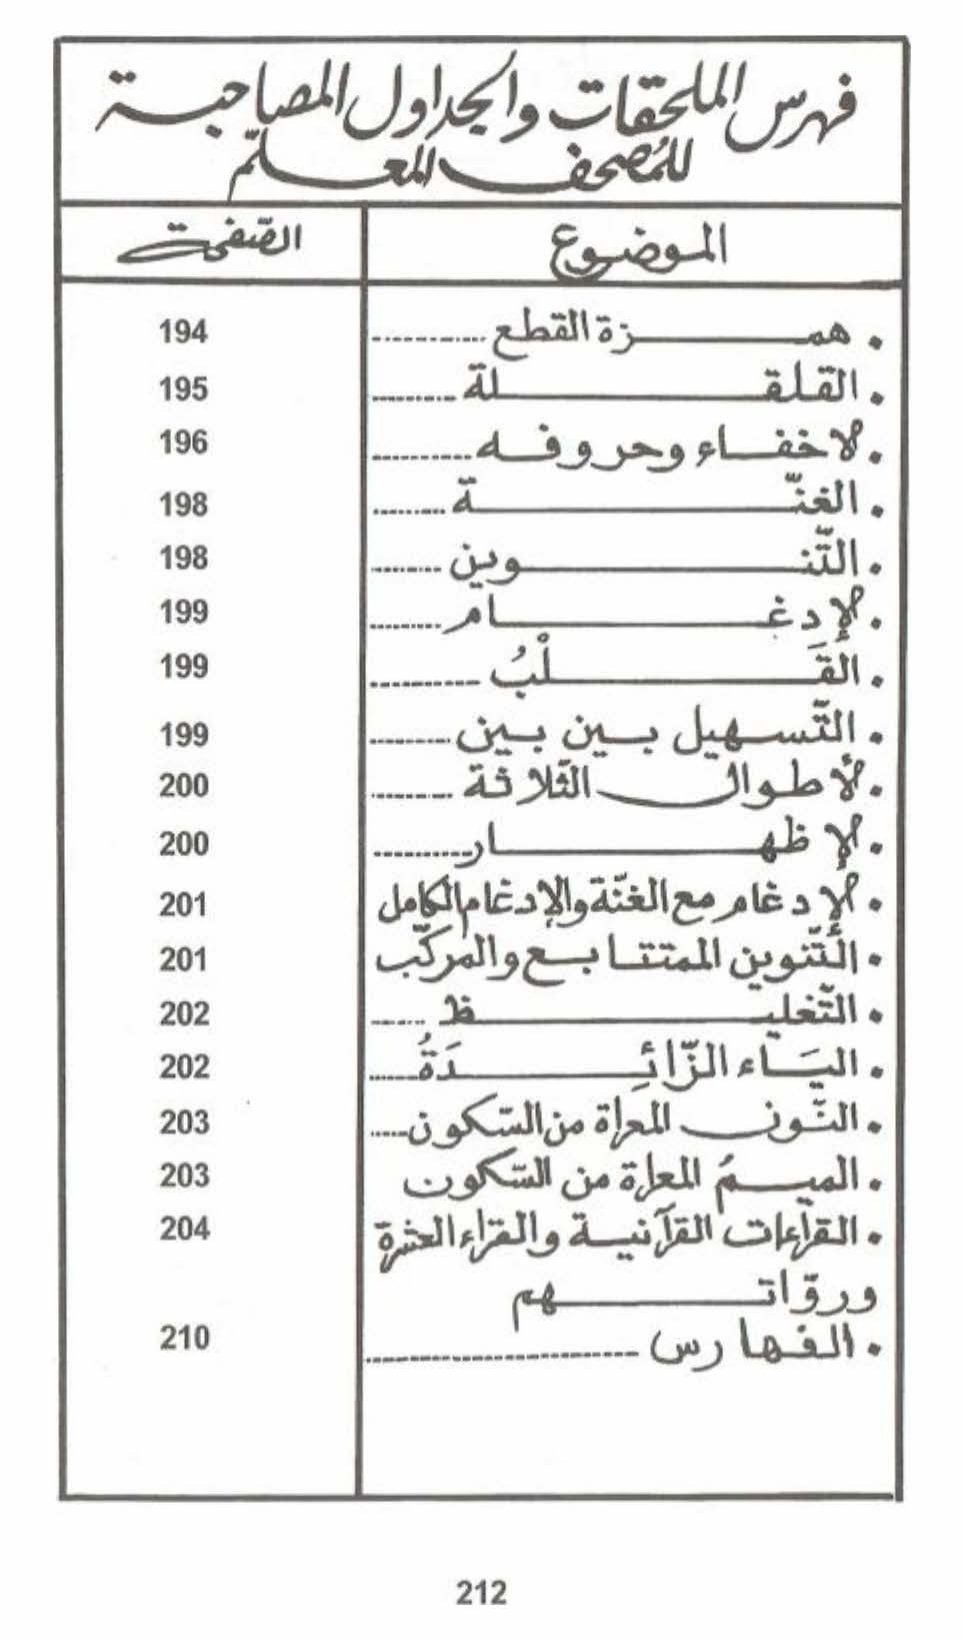 فهرس الملحقات والجداول المصاحبة
للمُصحف المعلّم
الموضوع الصّفحة
• همزة القطع ........... 194
• القلقلة ......... 195
• الاخفاء وحروفه .......... 196
• الغنّة ......... 198
• التّنوين ........ 198
• الإدغام ........ 199
• القَلْبُ ........... 199
• التّسهيل بين بين ......... 199
• الأطوال الثّلاثة ......... 200
• الإظهار .......... 200
• الإدغام مع الغنّة والإدغام الكامل 201
• التّنوين المتتابع والمركّب 201
• التّغليظ ...... 202
• اليَاء الزّائِدَةُ ...... 202
• النّون المعراة من السّكون ..... 203
• الميمُ المعراة من السّكون 203
• القرآءات القرآنية والقراء العشرة 204
وروّاتهم
• الفهارس ........................... 210
212